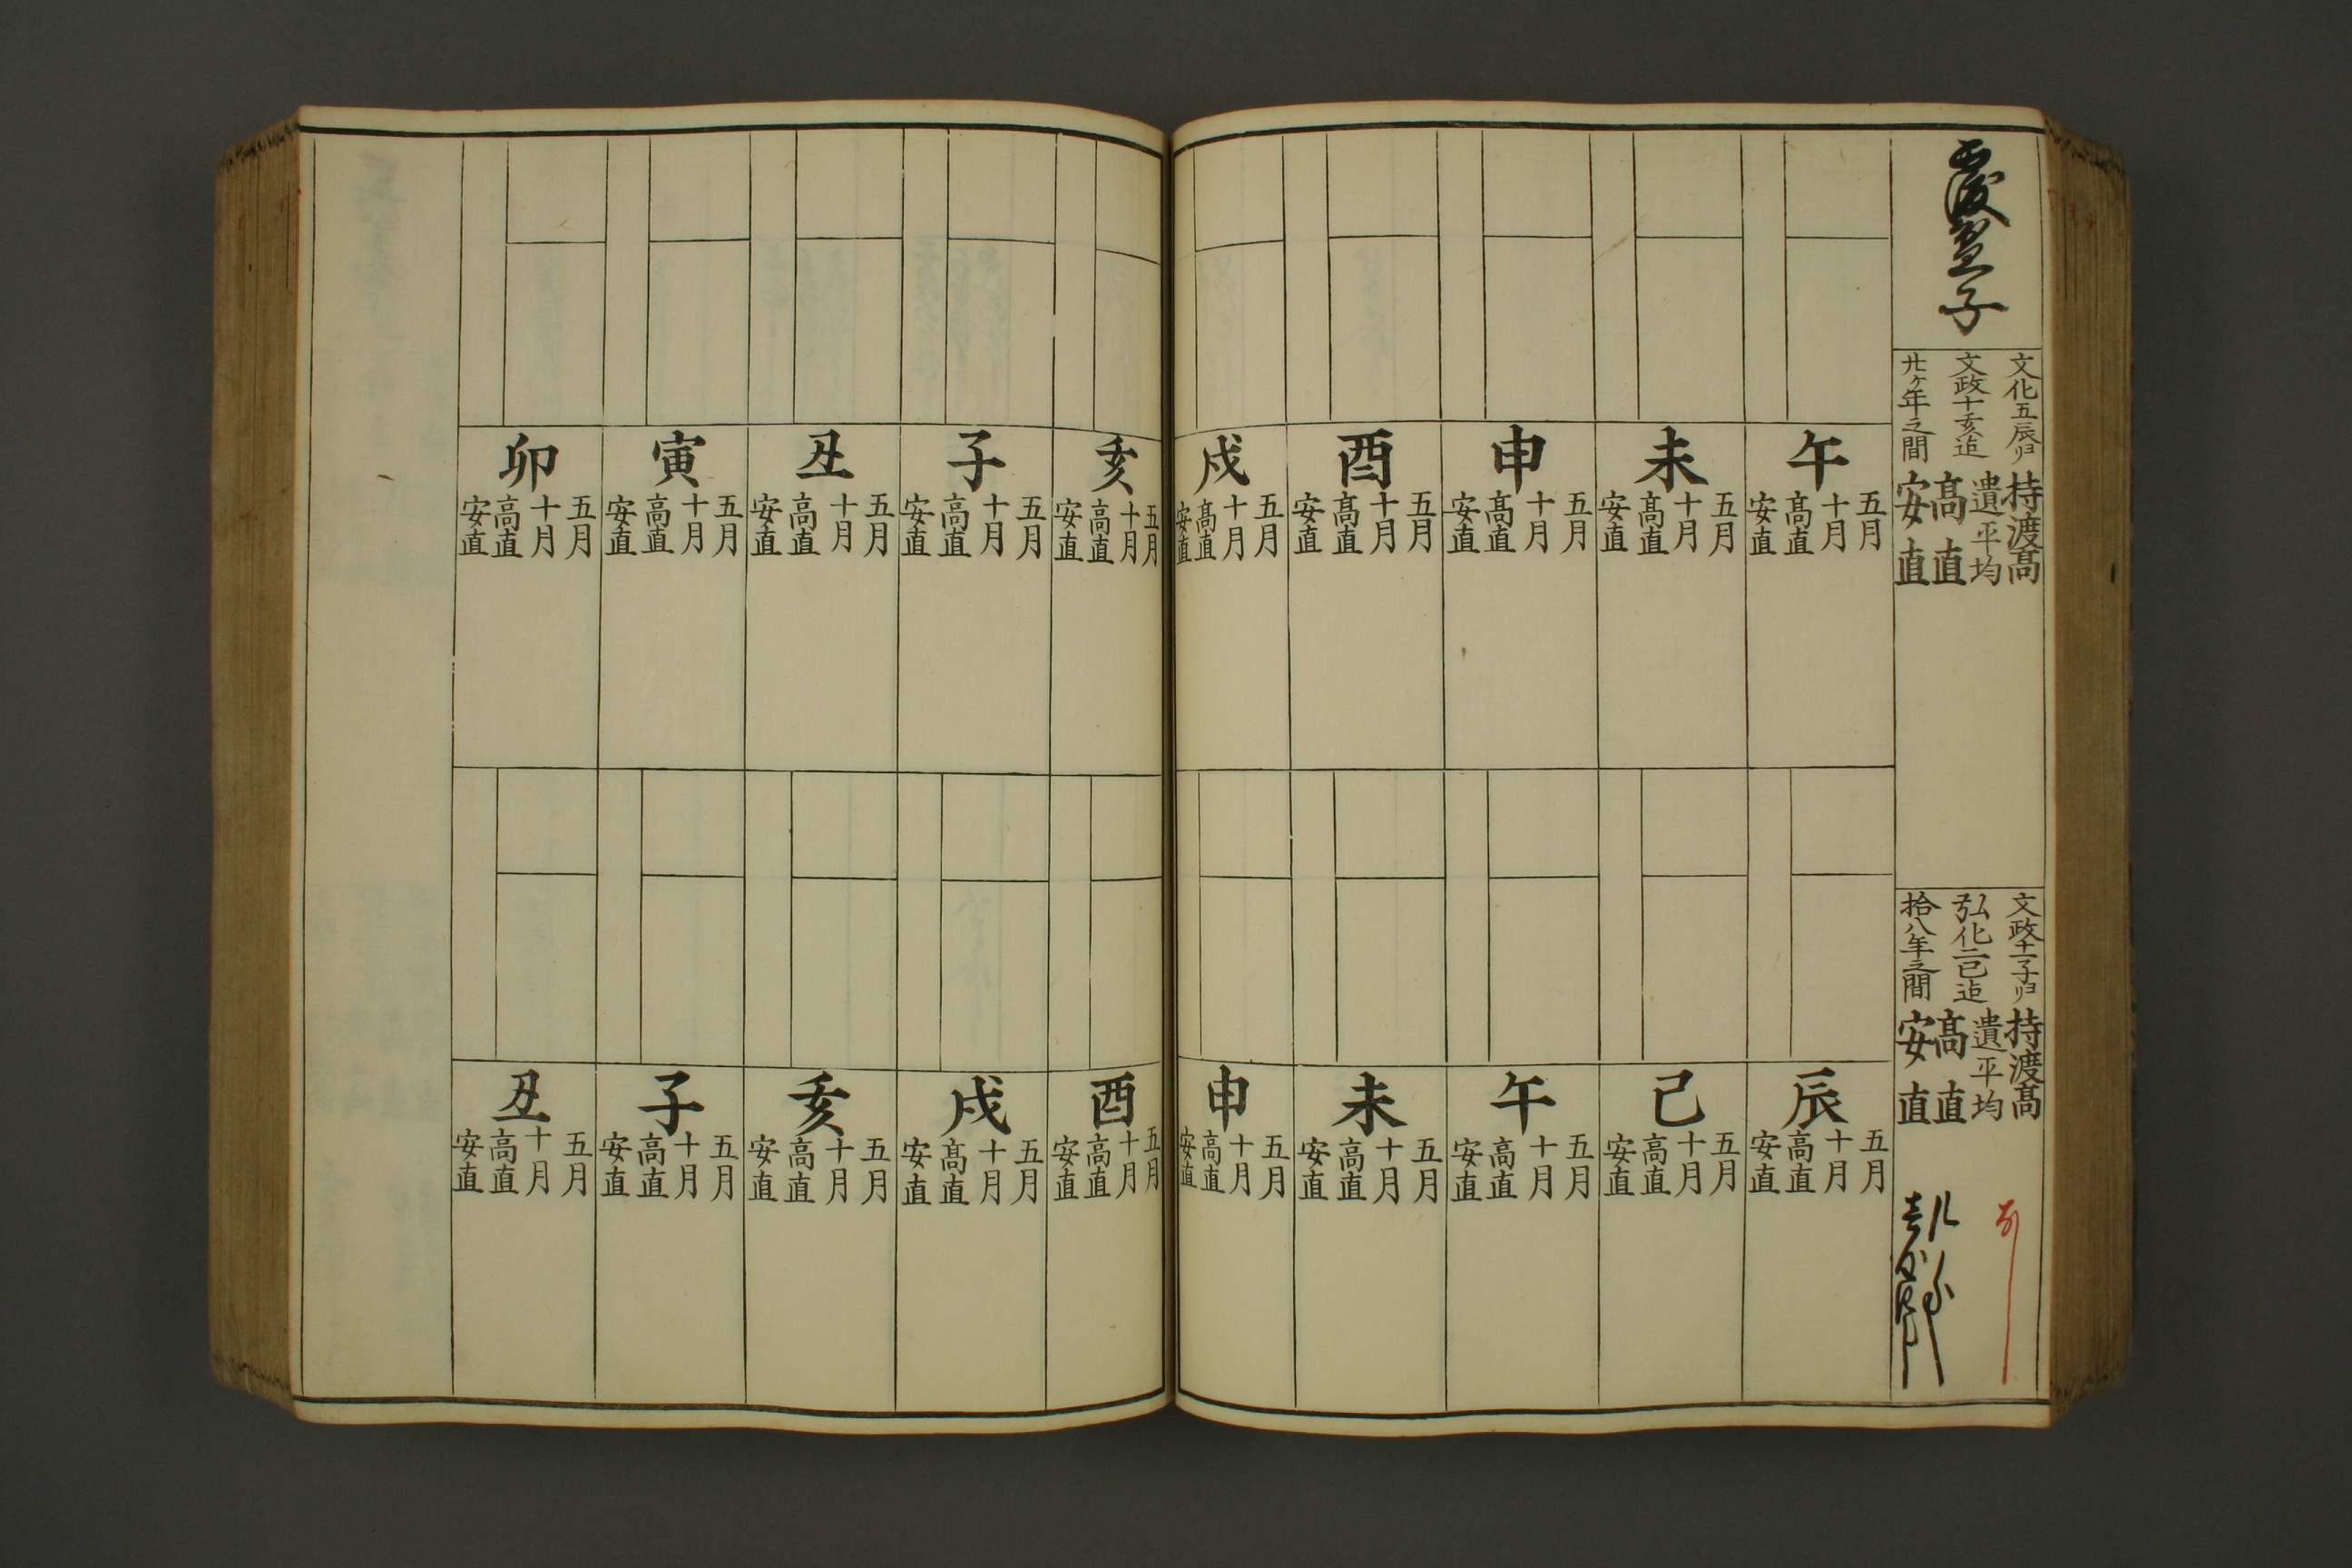 文化五辰ゟ
文政十亥迠
廿ケ年之間
持渡髙
遺平均
髙直
安直
文政十一子ゟ
弘化二巳迠
拾八年之間
持渡髙
遺平均
髙直
安直
午
五月
十月
髙直
安直
未
五月
十月
髙直
安直
申
五月
十月
髙直
安直
酉
五月
十月
髙直
安直
戌
五月
十月
髙直
安直
辰
五月
十月
高直
安直
巳
五月
十月
高直
安直
午
五月
十月
高直
安直
未
五月
十月
高直
安直
申
五月
十月
高直
安直
亥
五月
十月
高直
安直
子
五月
十月
高直
安直
丑
五月
十月
高直
安直
寅
五月
十月
高直
安直
卯
五月
十月
高直
安直
酉
五月
十月
高直
安直
戌
五月
十月
髙直
安直
亥
五月
十月
高直
安直
子
五月
十月
高直
安直
丑
五月
十月
高直
安直